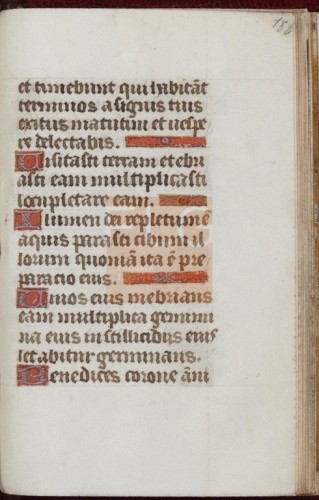 186
et timebunt qui habitāt
terminos a signis tuis
exitus matutini et uespe
re delectabis.
Uisitasti terram et ebri
asti eam multiplicasti
locupletare eam.
Flumen dei repletum ē
aquis parasti cibum il
lorum quoniā ita ē pre
paratio eius.
Riuos eius inebrians
eam multiplica genimi
na eius in stillicidijs eius
letabitur germinans.
Benedices corone āni